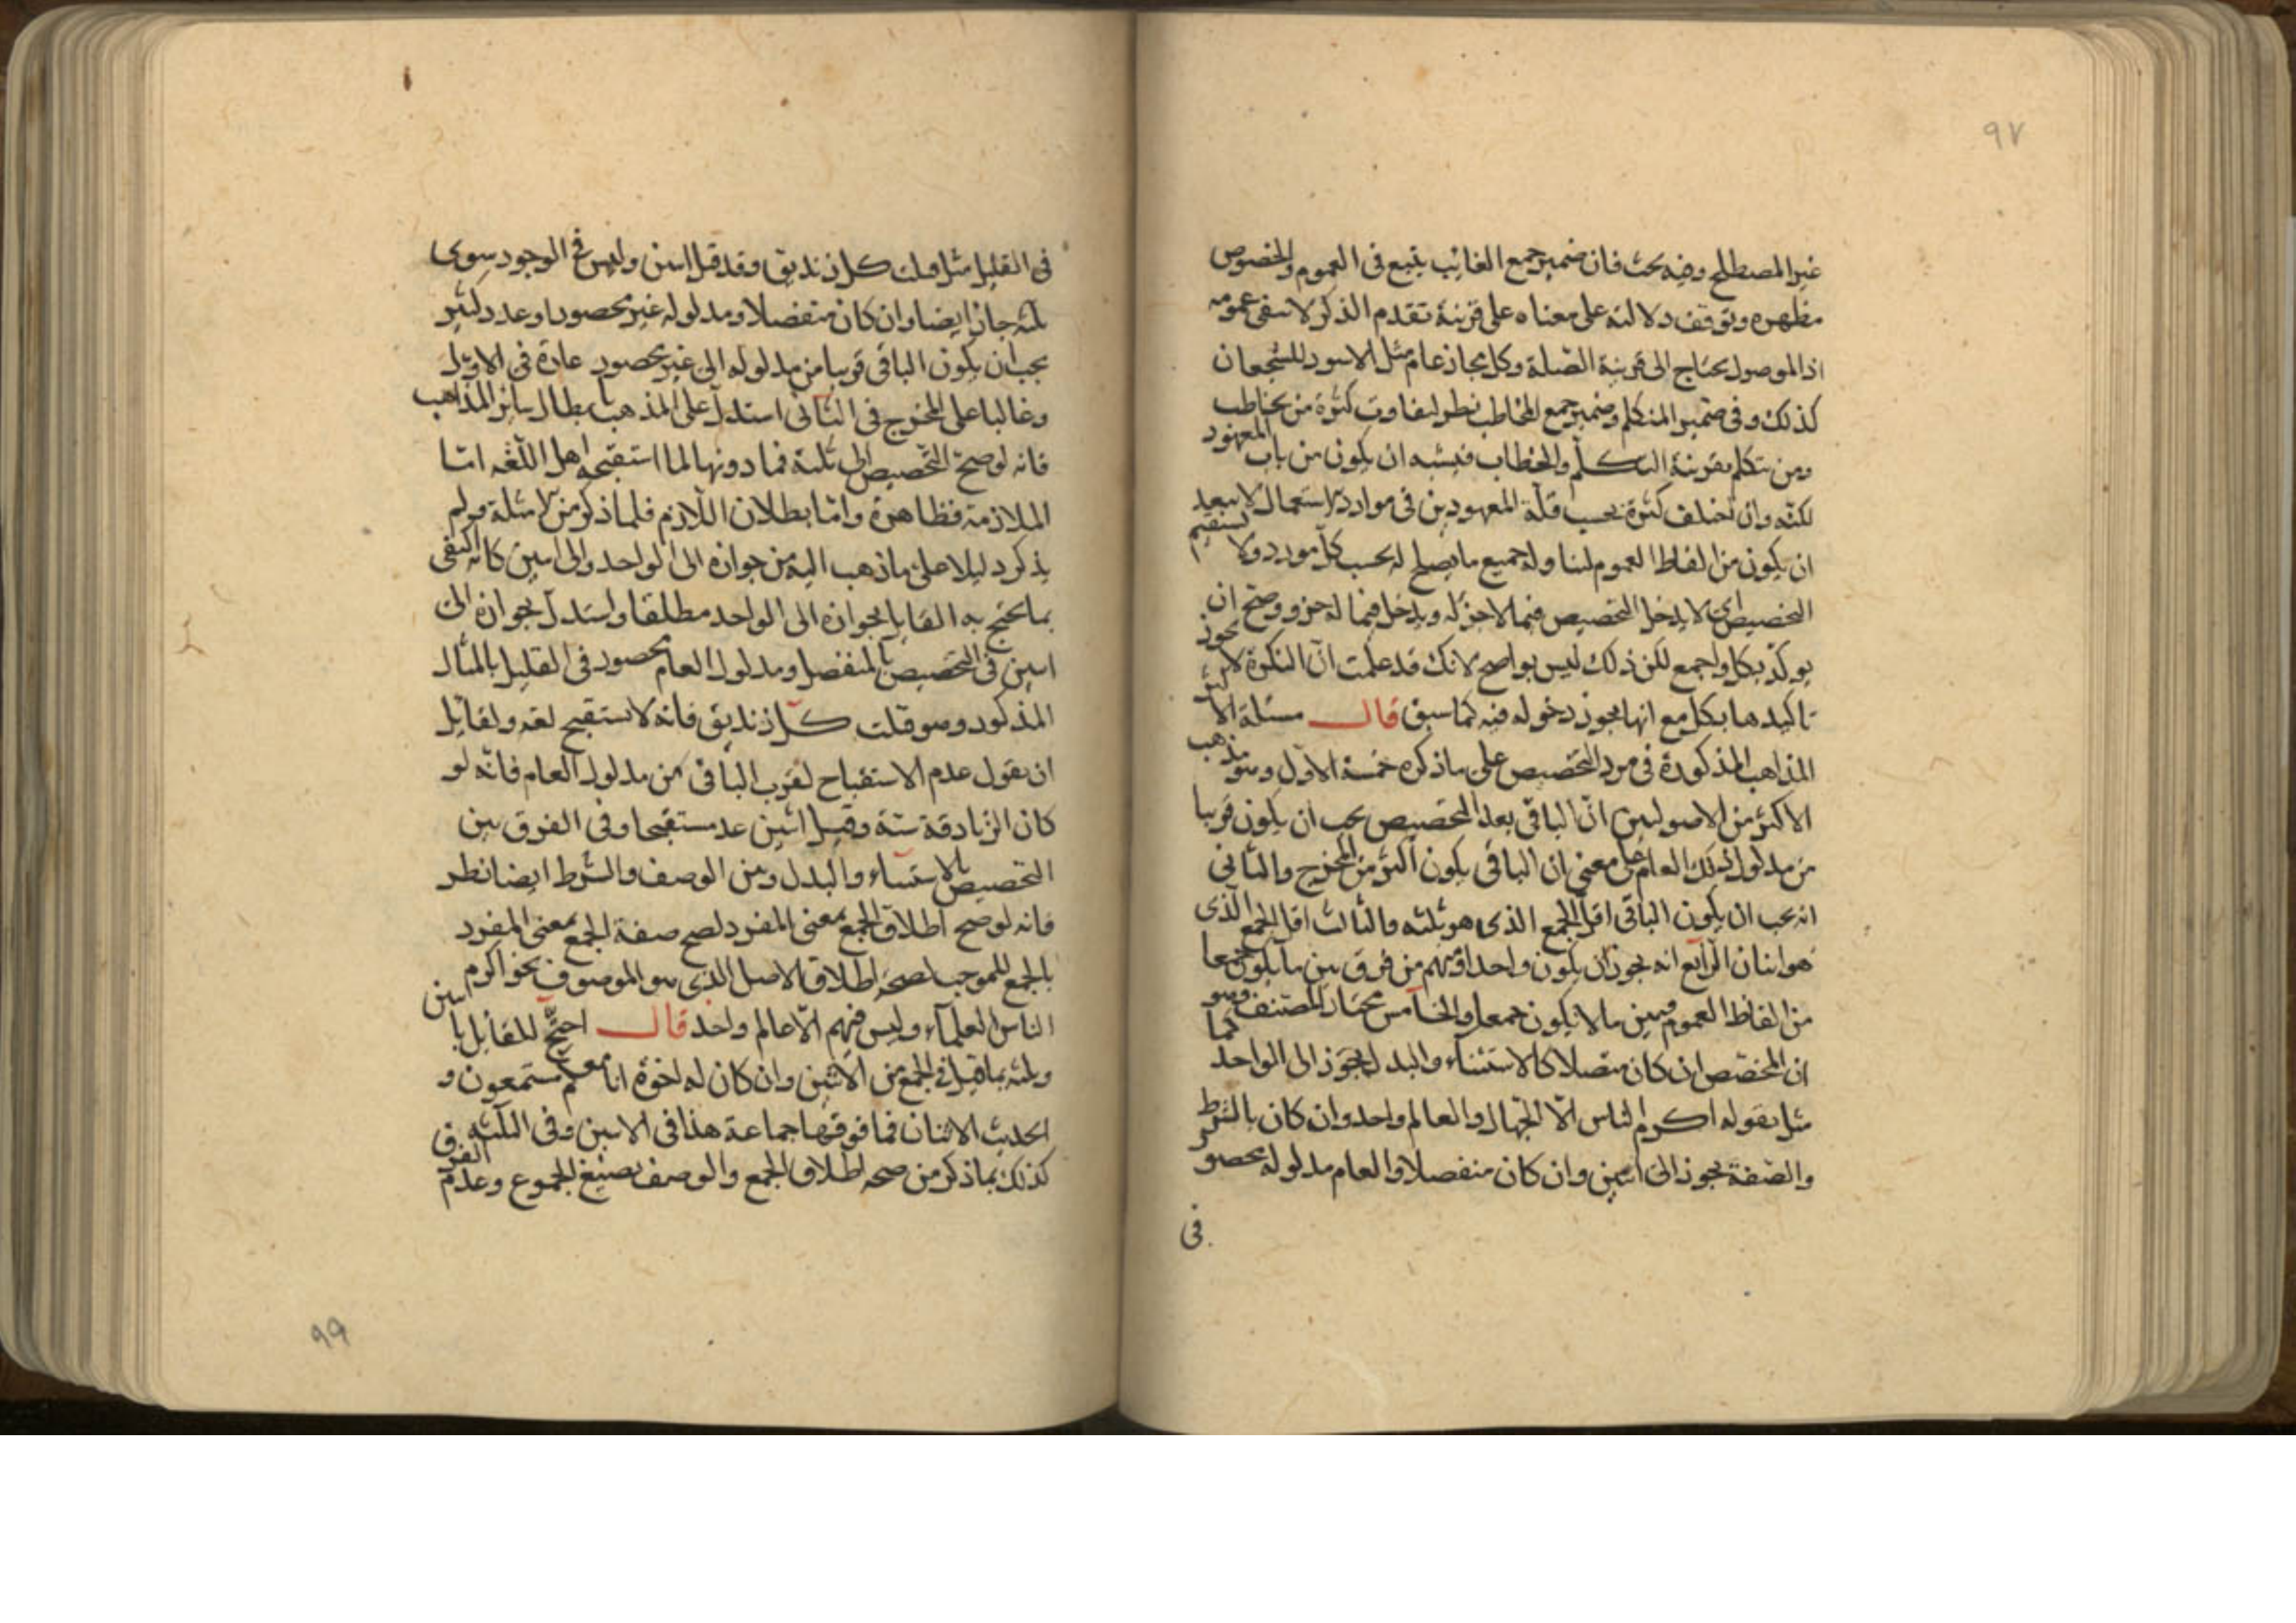 ٩٧
غير المصطلح وفيه بحث فان ضمير جمع الغائب يتبع في العموم والخصوص
مظهره وتوقف دلالته على معناه على قرينة تقدم الذكر لا ينفي عمومه
اذ الموصول يحتاج الى قرينة الصلة وكل مجاز عام مثل الاسود للشجعان
كذلك وفي ضمير المتكلم وضمير جمع المخاطب نظر لتفاوت كثرة من يخاطب
ومن يتكلم بقرينة التكلم والخطاب فيشبه ان يكون من باب المعهود
لكنه وان اختلف كثرة بحسب قلة المعهودين في موارد الاستعمال لا يبعد
ان يكون من الفاظ العموم لتناوله جميع ما يصلح له بحسب كل مورد ولا يستقيم
التخصيص اي لا يدخل التخصيص فيما لا جزء له ويدخل فيما له جزء وصح ان
يوكد بكل واجمع لكن ذلك ليس بواضح لانك قد علمت ان النكرة لا يجوز
تاكيدها بكل مع انها يجوز دخوله فيه كما سبق قال مسئلة الاكثر
المذاهب المذكورة في مرد التخصيص على ما ذكره خمسة الاول وهو مذهب
الاكثر من الاصوليين ان الباقي بعد التخصيص يجب ان يكون قريبا
من مدلول ذلك العام على معنى ان الباقي يكون اكثر من المخرج والثاني
انه يجب ان يكون الباقي اقل الجمع الذي هو ثلثه والثالث اقل الجمع الذي
هو اثنان الرابع انه يجوز ان يكون واحدا ومنهم من فرق بين ما يكون جمعا
من الفاظ العموم وبين ما لا يكون جمعا والخامس مختار المصنف وهو
ان المخصص ان كان متصلا كالاستثناء والبدل يجوز الى الواحد كما
مثل بقوله اكرم الناس الا الجهال والعالم واحد وان كان بالشرط
والصفة يجوز الى اثنين وان كان منفصلا والعام مدلوله محصور
في
في القليل مثل قتلت كل زنديق وقد قتل اثنين وليس في الوجود سوى
ثلثه جاز ايضا وان كان منفصلا ومدلوله غير محصور او عدد كثير
يجب ان يكون الباقي قريبا من مدلوله الى غير محصور عادة في الاول
وغالبا على المخرج في الثاني استدل على المذهب بابطال سائر المذاهب
فانه لو صح التخصيص الى ثلثة فما دونها لما استقبحه اهل اللغه اما
الملازمة فظاهرة واما بطلان اللازم فلما ذكر من الامثلة ولم
يذكر دليلا على ما ذهب اليه من جوازه الى الواحد والى اثنين كانه اكتفى
بما يحتج به القايل بجوازه الى الواحد مطلقا واستدل بجوازه الى
اثنين في التخصيص بالمنفصل ومدلول العام محصور في القليل بالمثال
المذكور وهو قتلت كل زنديق فانه لا يستقبح لغه ولقائل
ان يقول عدم الاستقباح لقرب الباقي من مدلول العام فانه لو
كان الزنادقة ستة وقتل اثنين عد مستقبحا وفي الفرق بين
التخصيص بالاستثناء والبدل وبين الوصف والشرط ايضا نظر
فانه لو صح اطلاق الجمع بمعنى المفرد لصح صفة الجمع بمعنى المفرد
بالجمع للموجب لصحة اطلاق الاصل الذي هو الموصوف نحو اكرم
الناس العلماء وليس فيهم الا عالم واحد قال احتج للقايل باثنين
وثلثه بما قيل في الجمع من الاثنين وان كان له اخوة انا معكم مستمعون و
الحديث الاثنان فما فوقها جماعة هذا في الاثنين وفي الثلثه
كذلك بما ذكر من صحه اطلاق الجمع والوصف بصيغ الجموع وعدم الفرق
٩٩